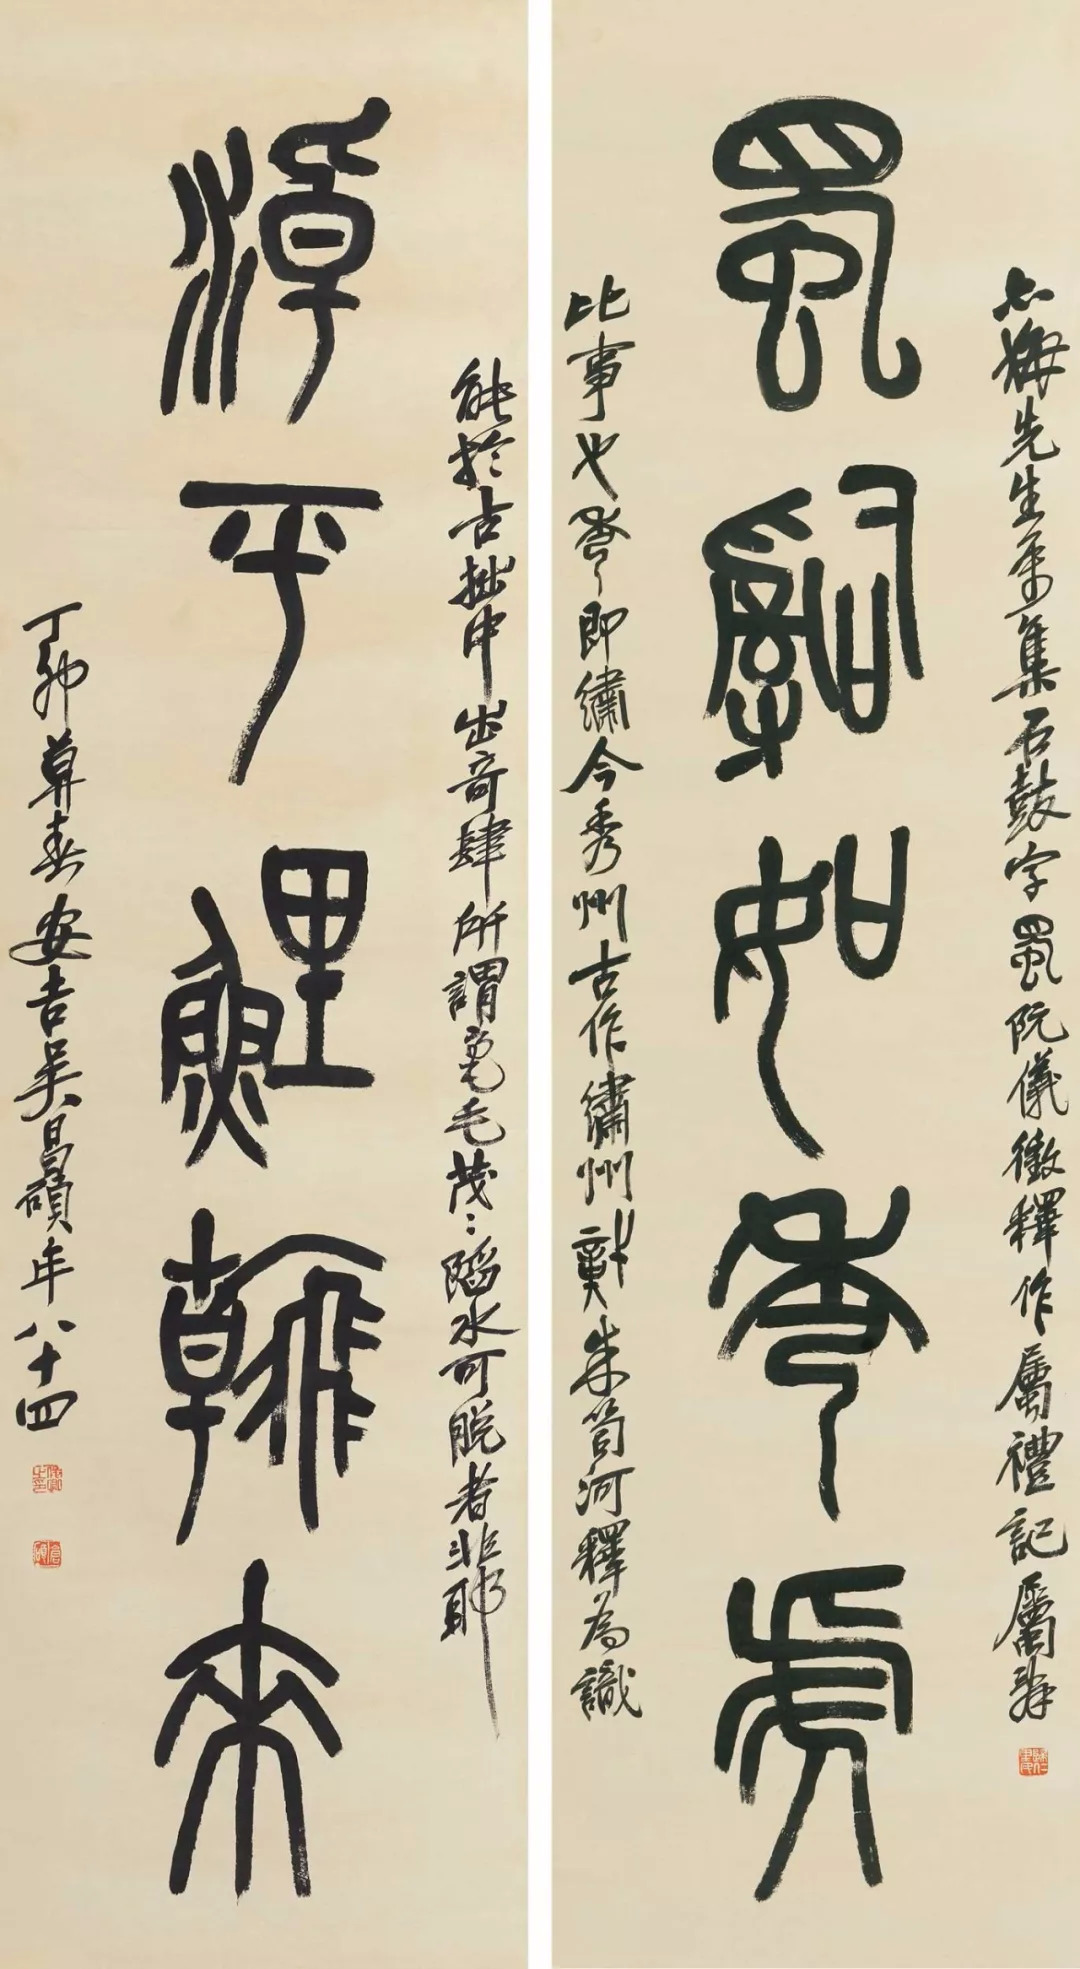 蜀𤔲如虎
梅先生屬集石鼓字蜀阮儀徵釋作屬禮記屬辭
比事也即繡今秀州古作繡州朱笥河釋為識
淖平鯉來
能於古拙中出奇肆所謂毫毛茂〻陷水可脫者非耶
丁卯春安吉吳昌碩年八十四